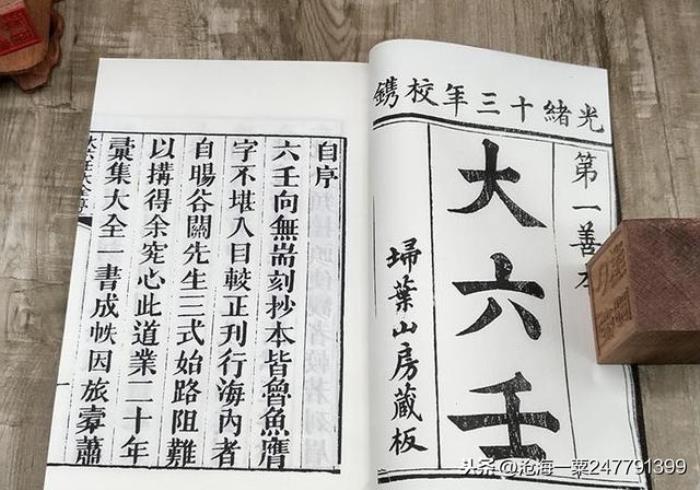 光緒十三年校鐫
第一善本
大六壬
埽葉山房藏板
自序
六壬向無耑刻抄本皆魯魚膺
字不堪入目較正刊行海內者
自暘谷關先生三式始路阻難
以搆得余究心此道業二十年
彙集大全一書成帙因旅槖蕭
头条 @沧海一粟247791399